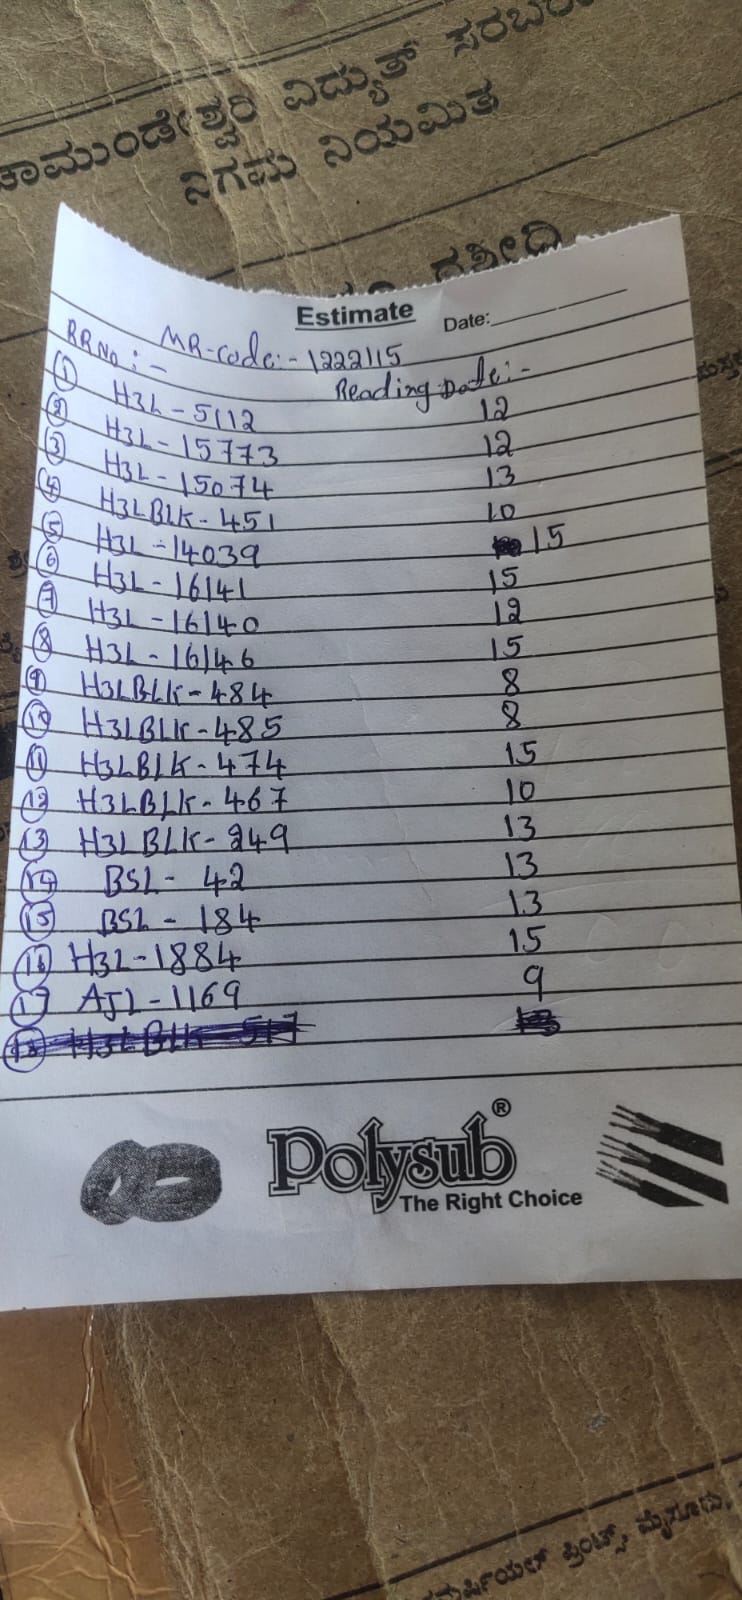 ಚಾಮುಂಡೇಶ್ವರಿ ವಿದ್ಯುತ್ ಸರಬರಾ
ನಿಗಮ ನಿಯಮಿತ
ರಶೀದಿ
Estimate
Date:
MR-code:- 1222115
RRNo:-
Reading Date:-
① H3L-5112 12
② H3L-15773 12
③ H3L-15074 13
④ H3LBLK-451 10
⑤ H3L-14039 15
⑥ H3L-16141 15
⑦ H3L-16140 12
⑧ H3L-16146 15
⑨ H3LBLK-484 8
⑩ H3LBLK-485 8
⑪ H3LBLK-474 15
⑫ H3LBLK-467 10
⑬ H3LBLK-249 13
⑭ BSL-42 13
⑮ BSL-184 13
⑯ H3L-1884 15
⑰ AJL-1169 9
⑱ H3LBLK-517 13
Polysub®
The Right Choice
ಪ್ರಿಂಟರ್ಸ್, ಮೈಸೂರು.